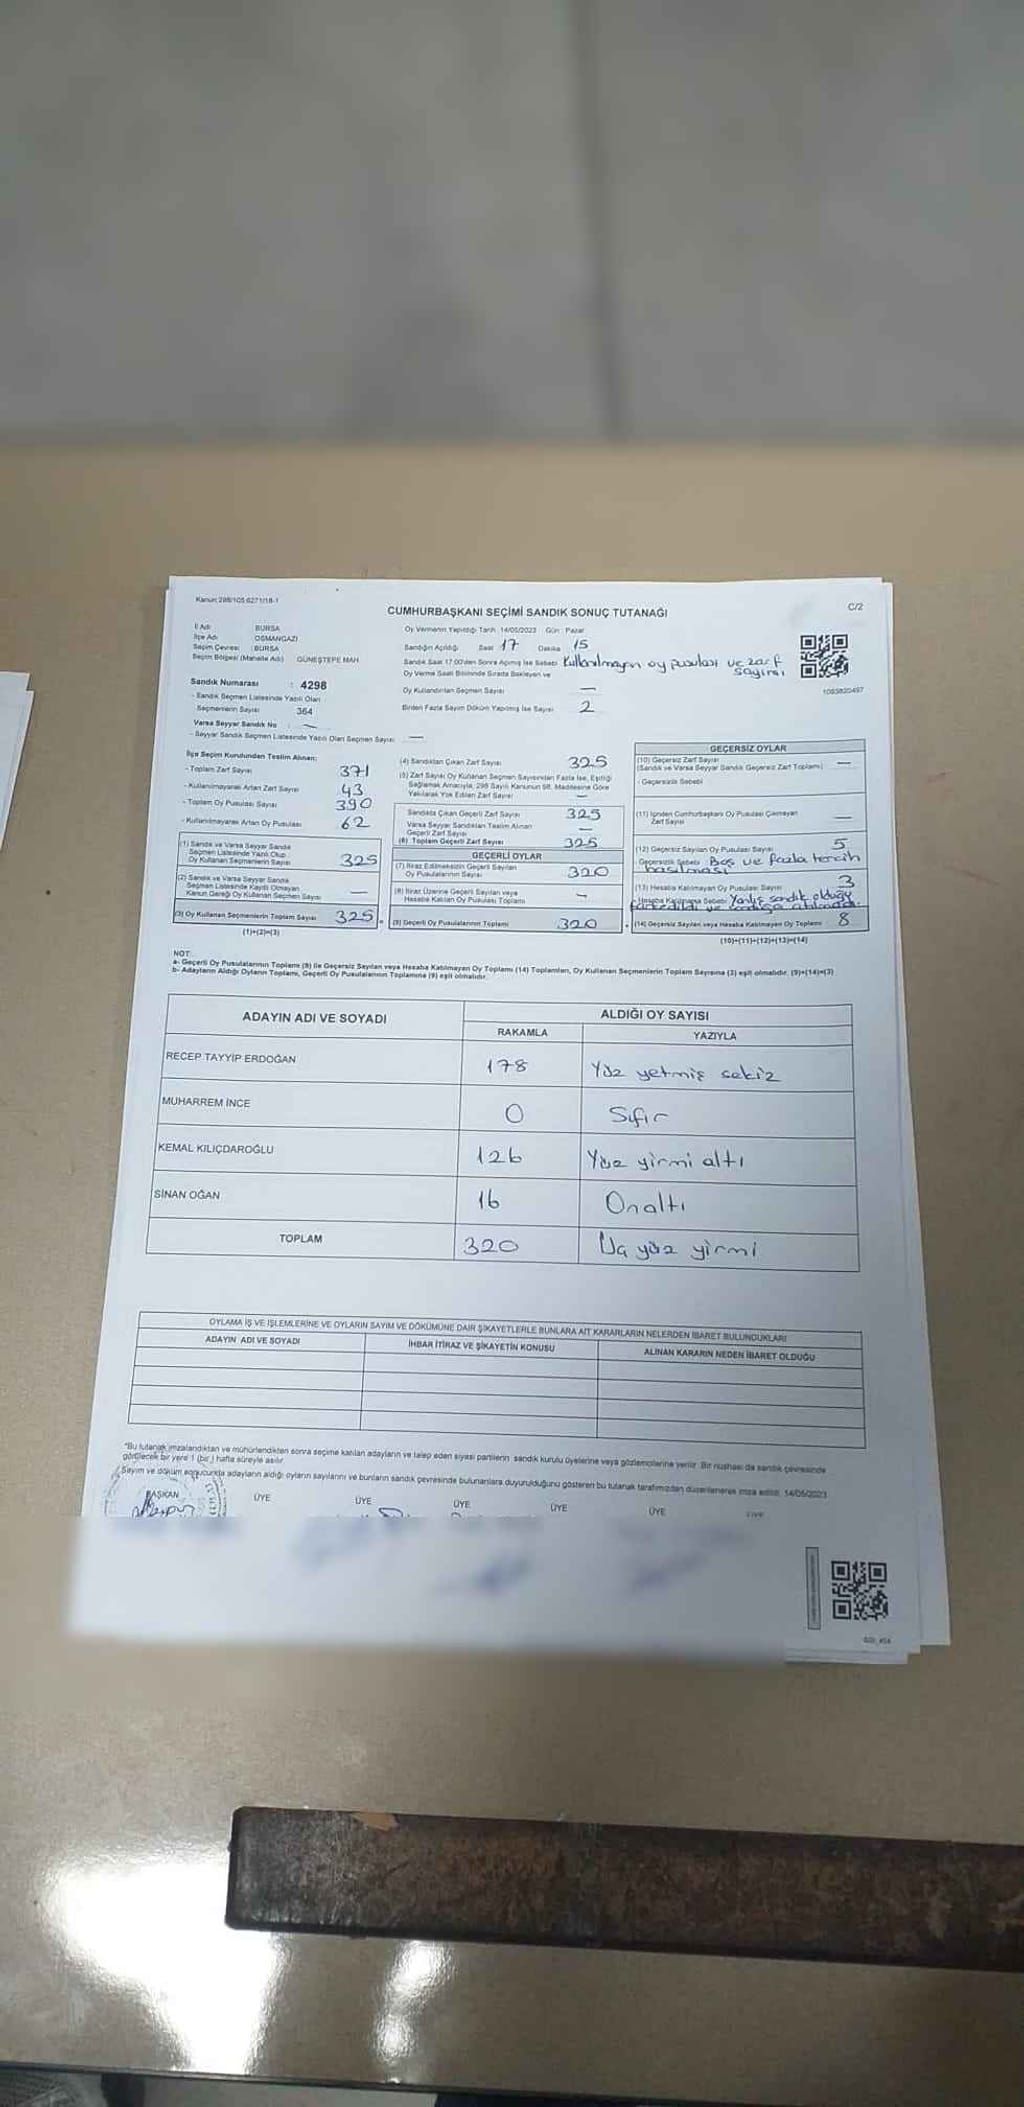 Kanun:298/105 6271/18-1
C/2
CUMHURBAŞKANI SEÇİMİ SANDIK SONUÇ TUTANAĞI
İl Adı BURSA
İlçe Adı OSMANGAZİ
Seçim Çevresi BURSA
Seçim Bölgesi (Mahalle Adı) GÜNEŞTEPE MAH
Oy Vermenin Yapıldığı Tarih 14/05/2023 Gün Pazar
Sandığın Açıldığı Saat 17 Dakika 15
Sandık Saat 17.00'den Sonra Açılmış İse Sebebi Kullanılmayan oy pusulası ve zarf sayımı
Oy Verme Saati Bitiminde Sırada Bekleyen ve
Oy Kullandırılan Seçmen Sayısı —
Birden Fazla Sayım Döküm Yapılmış İse Sayısı 2
1093820497
Sandık Numarası : 4298
- Sandık Seçmen Listesinde Yazılı Olan
Seçmenlerin Sayısı 364
Varsa Seyyar Sandık No : —
- Seyyar Sandık Seçmen Listesinde Yazılı Olan Seçmen Sayısı —
İlçe Seçim Kurulundan Teslim Alınan:
- Toplam Zarf Sayısı 371
- Kullanılmayarak Artan Zarf Sayısı 43
- Toplam Oy Pusulası Sayısı 390
- Kullanılmayarak Artan Oy Pusulası 62
(1) Sandık ve Varsa Seyyar Sandık
Seçmen Listesinde Yazılı Olup
Oy Kullanan Seçmenlerin Sayısı 325
(2) Sandık ve Varsa Seyyar Sandık
Seçmen Listesinde Kayıtlı Olmayan
Kanun Gereği Oy Kullanan Seçmen Sayısı —
(3) Oy Kullanan Seçmenlerin Toplam Sayısı 325
(1)+(2)=(3)
(4) Sandıktan Çıkan Zarf Sayısı 325
(5) Zarf Sayısı Oy Kullanan Seçmen Sayısından Fazla İse, Eşitliği
Sağlamak Amacıyla, 298 Sayılı Kanunun 98. Maddesine Göre
Yakılarak Yok Edilen Zarf Sayısı —
Sandıkta Çıkan Geçerli Zarf Sayısı 325
Varsa Seyyar Sandıktan Teslim Alınan
Geçerli Zarf Sayısı —
(6) Toplam Geçerli Zarf Sayısı 325
GEÇERLİ OYLAR
(7) İtiraz Edilmeksizin Geçerli Sayılan
Oy Pusulalarının Sayısı 320
(8) İtiraz Üzerine Geçerli Sayılan veya
Hesaba Katılan Oy Pusulası Toplamı —
(9) Geçerli Oy Pusulalarının Toplamı 320
GEÇERSİZ OYLAR
(10) Geçersiz Zarf Sayısı
(Sandık ve Varsa Seyyar Sandık Geçersiz Zarf Toplamı) —
- Geçersizlik Sebebi
(11) İçinden Cumhurbaşkanı Oy Pusulası Çıkmayan
Zarf Sayısı —
(12) Geçersiz Sayılan Oy Pusulası Sayısı 5
- Geçersizlik Sebebi Boş ve fazla tercih basılması
(13) Hesaba Katılmayan Oy Pusulası Sayısı 3
- Hesaba Katılmama Sebebi Yanlış sandık olduğu
farkedildi ve sandığa atılmadı.
(14) Geçersiz Sayılan veya Hesaba Katılmayan Oy Toplamı 8
(10)+(11)+(12)+(13)=(14)
NOT:
a- Geçerli Oy Pusulalarının Toplamı (9) ile Geçersiz Sayılan veya Hesaba Katılmayan Oy Toplamı (14) Toplamları, Oy Kullanan Seçmenlerin Toplam Sayısına (3) eşit olmalıdır. (9)+(14)=(3)
b- Adayların Aldığı Oyların Toplamı, Geçerli Oy Pusulalarının Toplamına (9) eşit olmalıdır.
ADAYIN ADI VE SOYADI ALDIĞI OY SAYISI
RAKAMLA YAZIYLA
RECEP TAYYİP ERDOĞAN 178 Yüz yetmiş sekiz
MUHARREM İNCE 0 Sıfır
KEMAL KILIÇDAROĞLU 126 Yüz yirmi altı
SİNAN OĞAN 16 Onaltı
TOPLAM 320 Üç yüz yirmi
OYLAMA İŞ VE İŞLEMLERİNE VE OYLARIN SAYIM VE DÖKÜMÜNE DAİR ŞİKAYETLERLE BUNLARA AİT KARARLARIN NELERDEN İBARET BULUNDUKLARI
ADAYIN ADI VE SOYADI İHBAR İTİRAZ VE ŞİKAYETİN KONUSU ALINAN KARARIN NEDEN İBARET OLDUĞU
*Bu tutanak imzalandıktan ve mühürlendikten sonra seçime katılan adayların ve talep eden siyasi partilerin sandık kurulu üyelerine veya gözlemcilerine verilir. Bir nüshası da sandık çevresinde
görülecek bir yere 1 (bir) hafta süreyle asılır.
Sayım ve döküm sonucunda adayların aldığı oyların sayılarını ve bunların sandık çevresinde bulunanlara duyurulduğunu gösteren bu tutanak tarafımızdan düzenlenerek imza edildi. 14/05/2023
BAŞKAN ÜYE ÜYE ÜYE ÜYE ÜYE ÜYE